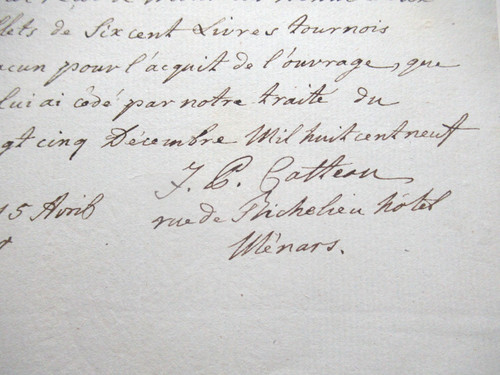 lets de Sixcent Livres tournois
acun pour l'acquit de l'ouvrage, que
lui ai cédé par notre traité du
gt cinq Décembre Mil huit cent neuf
J. P. Catteau
15 Avril
rue de Richelieu hôtel
Ménars.